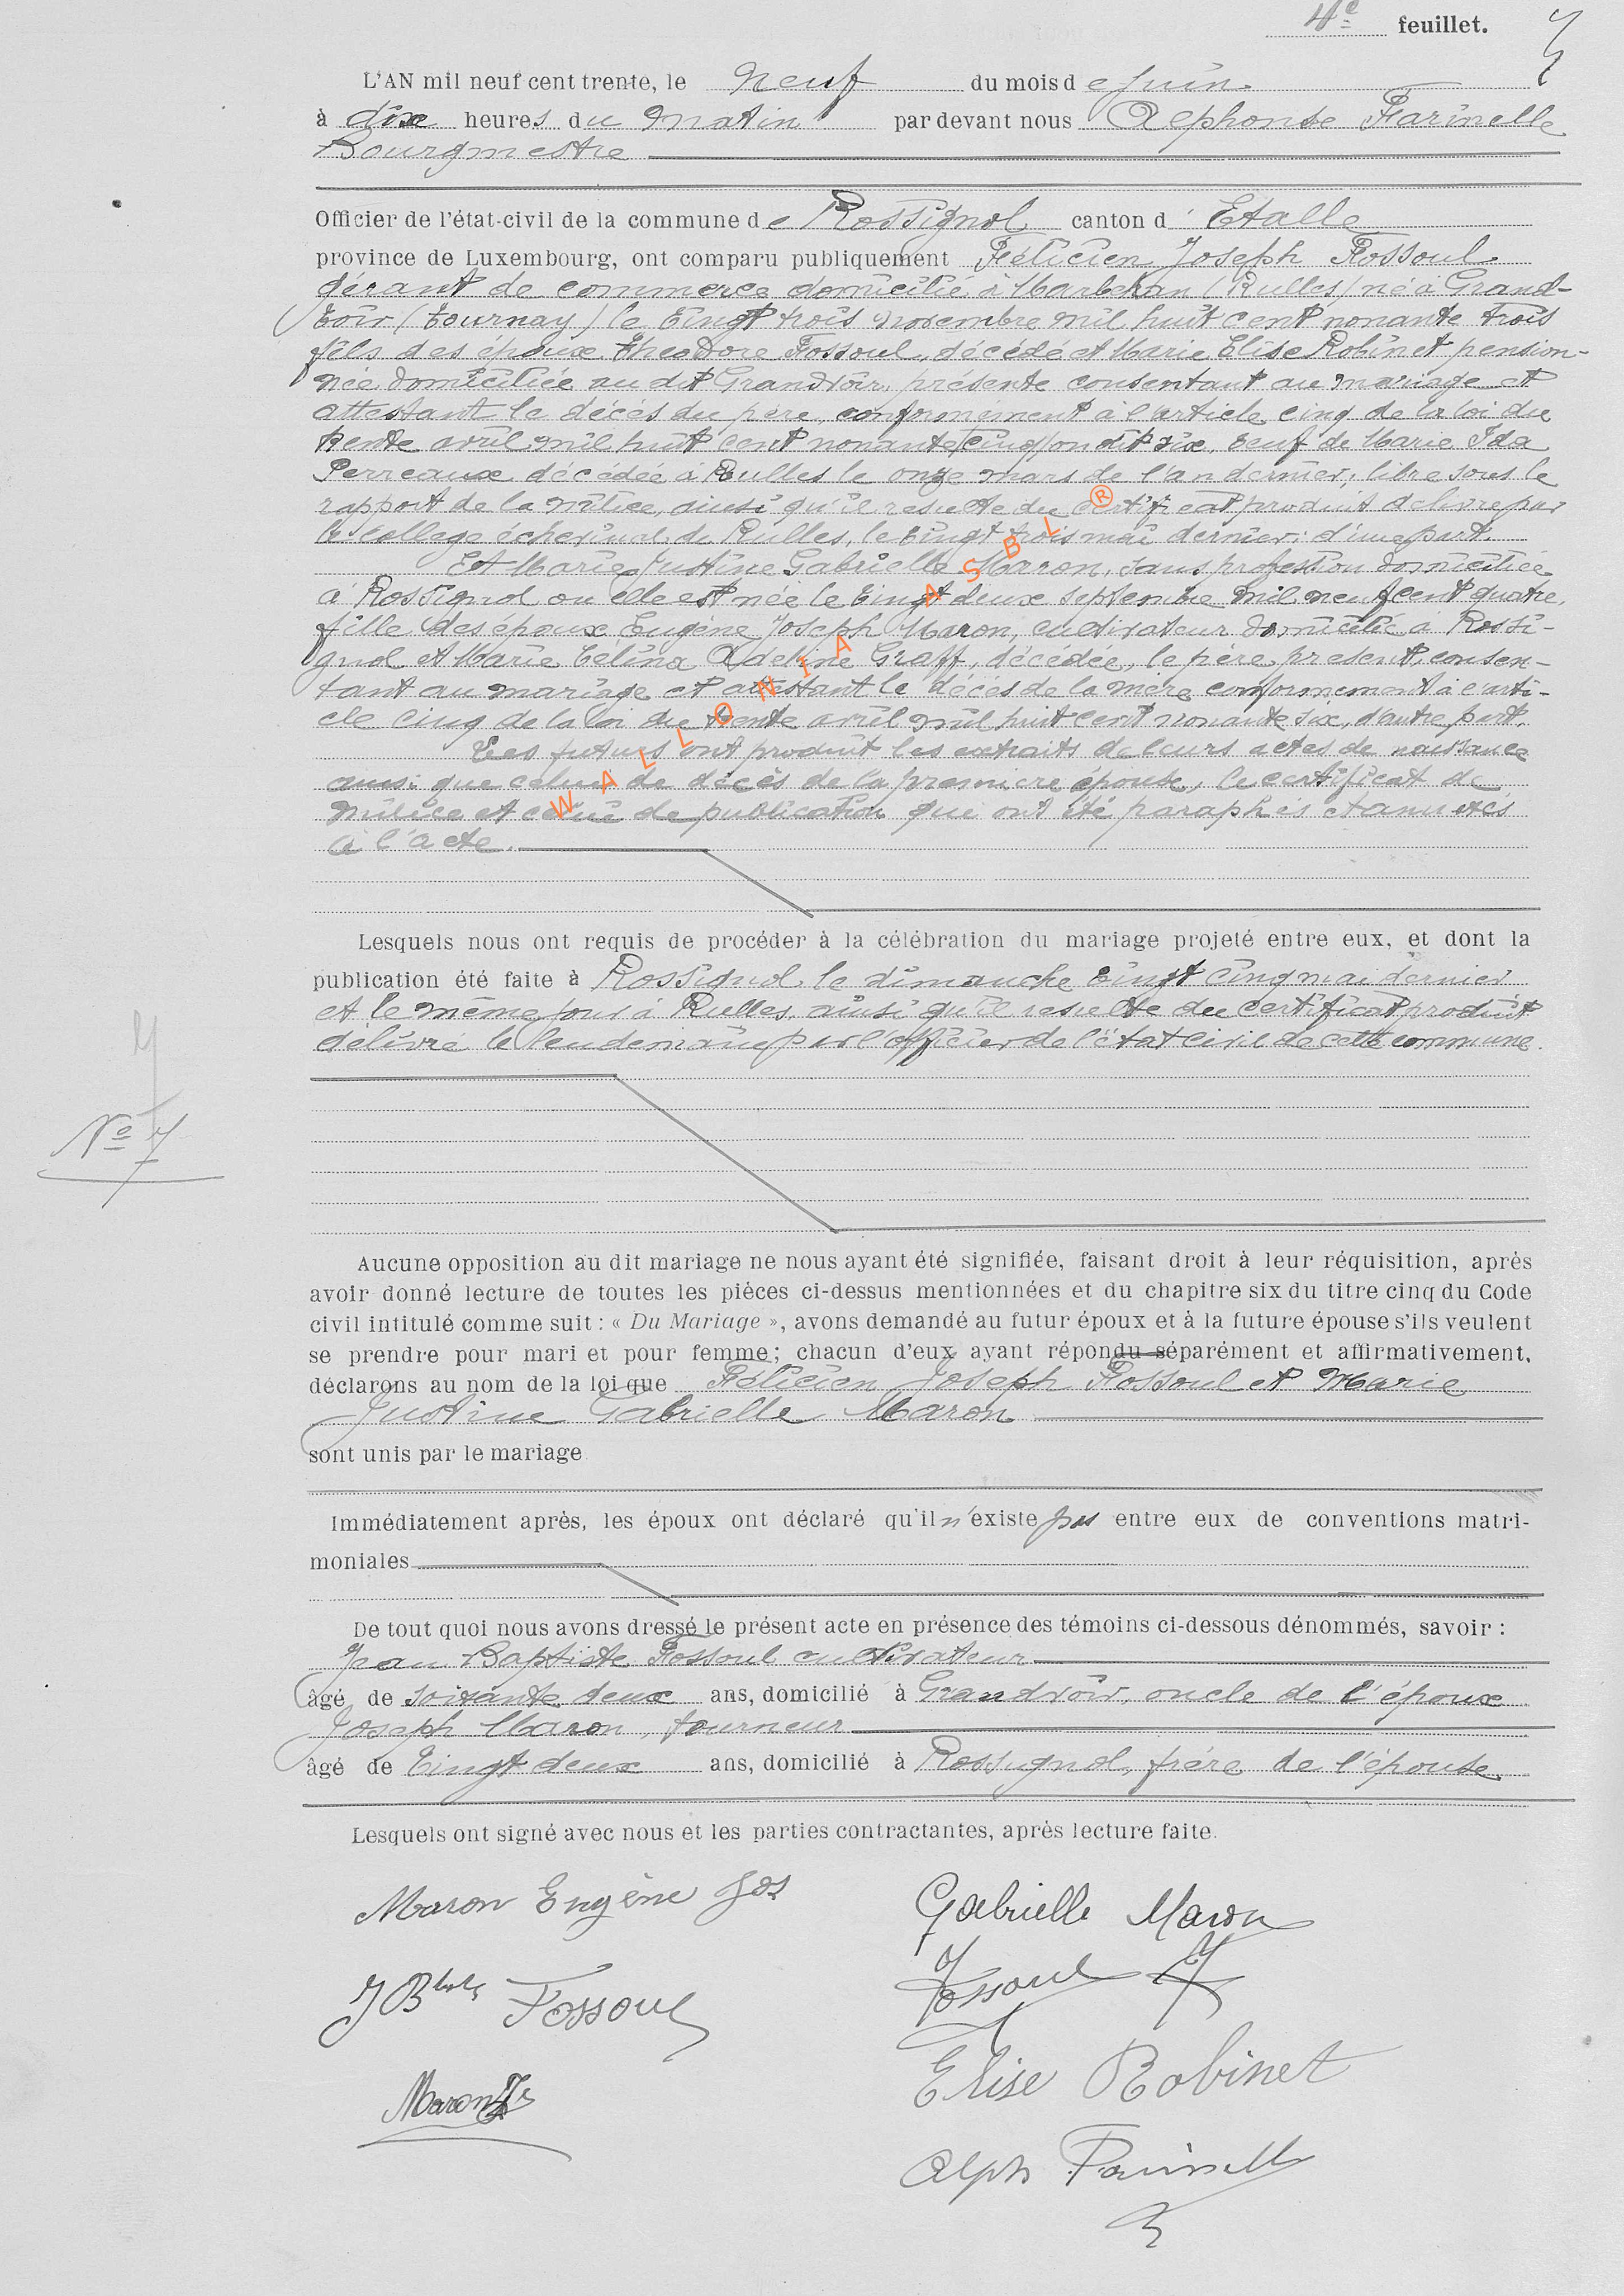 4e feuillet.
L'AN mil neuf cent trente, le neuf du mois de juin
à dix heures du matin par devant nous Alphonse Farinelle
Bourgmestre
Officier de l'état-civil de la commune de Rossignol canton d' Etalle
province de Luxembourg, ont comparu publiquement Félicien Joseph Fossoul
gérant de commerce domicilié à Marbehan (Rulles) né à Grand-
voir (Tournay) le vingt trois novembre mil huit cent nonante trois
fils des époux Théodore Fossoul, décédé et Marie Elise Robinet pension-
née domiciliée au dit Grandvoir, présente consentant au mariage et
attestant le décès du père, conformément à l'article cinq de la loi du
trente avril mil huit cent nonante cinq/on dit six, veuf de Marie Ida
Perreaux décédée à Rulles le onze mars de l'an dernier; libre sous le
rapport de la milice, ainsi qu'il résulte du certificat produit délivré par
le collège échevinal de Rulles, le vingt trois mai dernier; d'une part.
Et Marie Justine Gabrielle Maron, sans profession domiciliée
à Rossignol ou elle est née le vingt deux septembre mil neuf cent quatre,
fille des époux Eugène Joseph Maron, cultivateur domicilié à Rossi-
gnol et Marie Célina Adeline Graff, décédée, le père présent, consen-
tant au mariage et attestant le décès de la mère conformément à l'arti-
cle cinq de la loi du trente avril mil huit cent nonante six, d'autre part.
Les futurs ont produit les extraits de leurs actes de naissance
ainsi que celui de décès de la première épouse, le certificat de
milice et celui de publication que ont été paraphés et annexés
à l'acte.
WALLONIA ASBL ®
Lesquels nous ont requis de procéder à la célébration du mariage projeté entre eux, et dont la
publication été faite à Rossignol le dimanche vingt cinq mai dernier
et le même jour à Rulles, ainsi qu'il résulte du certificat produit
délivré le lendemain par l'officier de l'état civil de cette commune.
No 7
Aucune opposition au dit mariage ne nous ayant été signifiée, faisant droit à leur réquisition, après
avoir donné lecture de toutes les pièces ci-dessus mentionnées et du chapitre six du titre cinq du Code
civil intitulé comme suit : « Du Mariage », avons demandé au futur époux et à la future épouse s'ils veulent
se prendre pour mari et pour femme; chacun d'eux ayant répondu séparément et affirmativement,
déclarons au nom de la loi que Félicien Joseph Fossoul et Marie
Justine Gabrielle Maron
sont unis par le mariage
Immédiatement après, les époux ont déclaré qu'il n'existe pas entre eux de conventions matri-
moniales
De tout quoi nous avons dressé le présent acte en présence des témoins ci-dessous dénommés, savoir :
Jean Baptiste Fossoul cultivateur
âgé de soixante deux ans, domicilié à Grandvoir, oncle de l'époux
Joseph Maron, tourneur
âgé de vingt deux ans, domicilié à Rossignol, frère de l'épouse.
Lesquels ont signé avec nous et les parties contractantes, après lecture faite.
Maron Eugène Jos
Gabrielle Maron
J Bte Fossoul
Fossoul F
Elise Robinet
Maron Js
Alph Farinelle